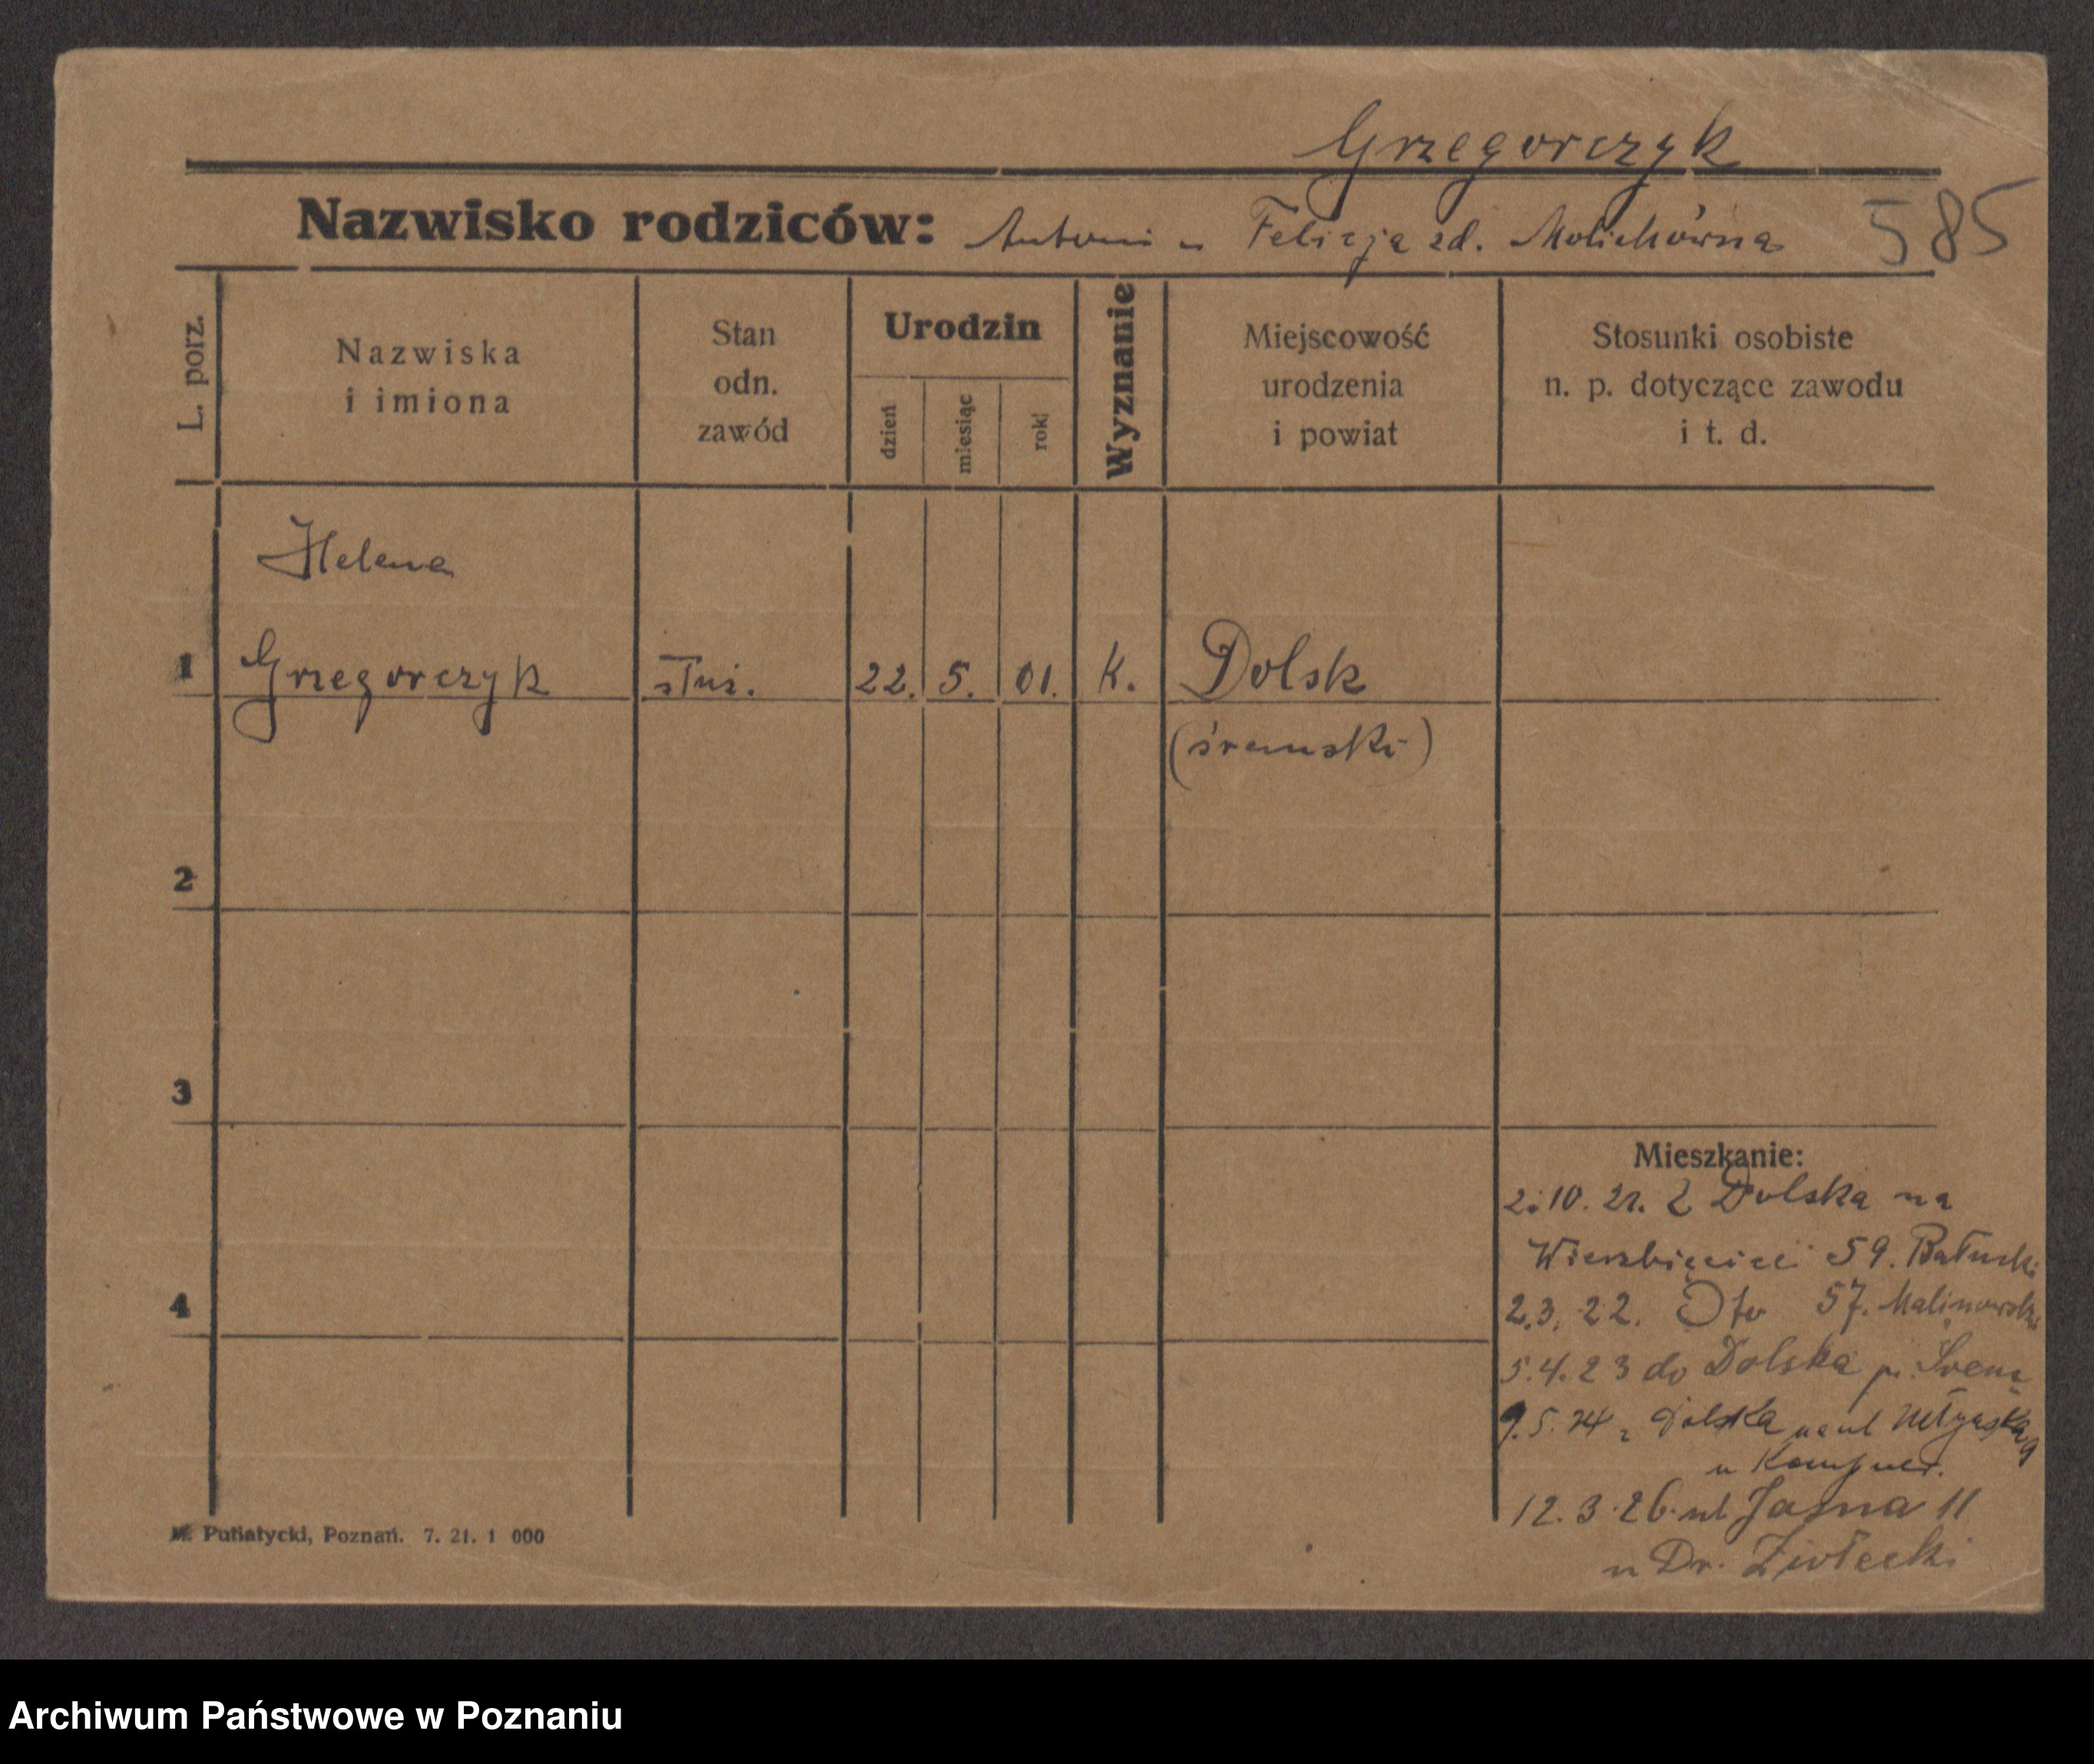 Grzegorczyk
Nazwisko rodziców: Antoni u Felicja zd. Molichówna 585
L. porz.
Nazwiska
i imiona
Stan
odn.
zawód
Urodzin
dzień
miesiąc
rok
Wyznanie
Miejscowość
urodzenia
i powiat
Stosunki osobiste
n. p. dotyczące zawodu
i t. d.
Helena
1 Grzegorczyk służ. 22. 5. 01. K. Dolsk
(śremski)
2
3
4
Mieszkanie:
2.10.21. z Dolska na
Wierzbięcice 59. Bałuski
2.3.22. Oto 57. Malinowski
5.4.23 do Dolska p. Śrem
9.5.24 z Dolska na ul
u
12.3.26. ul Jasna 11
u Dr. Ziołecki
M. Putiatycki, Poznań. 7. 21. 1 000
Archiwum Państwowe w Poznaniu